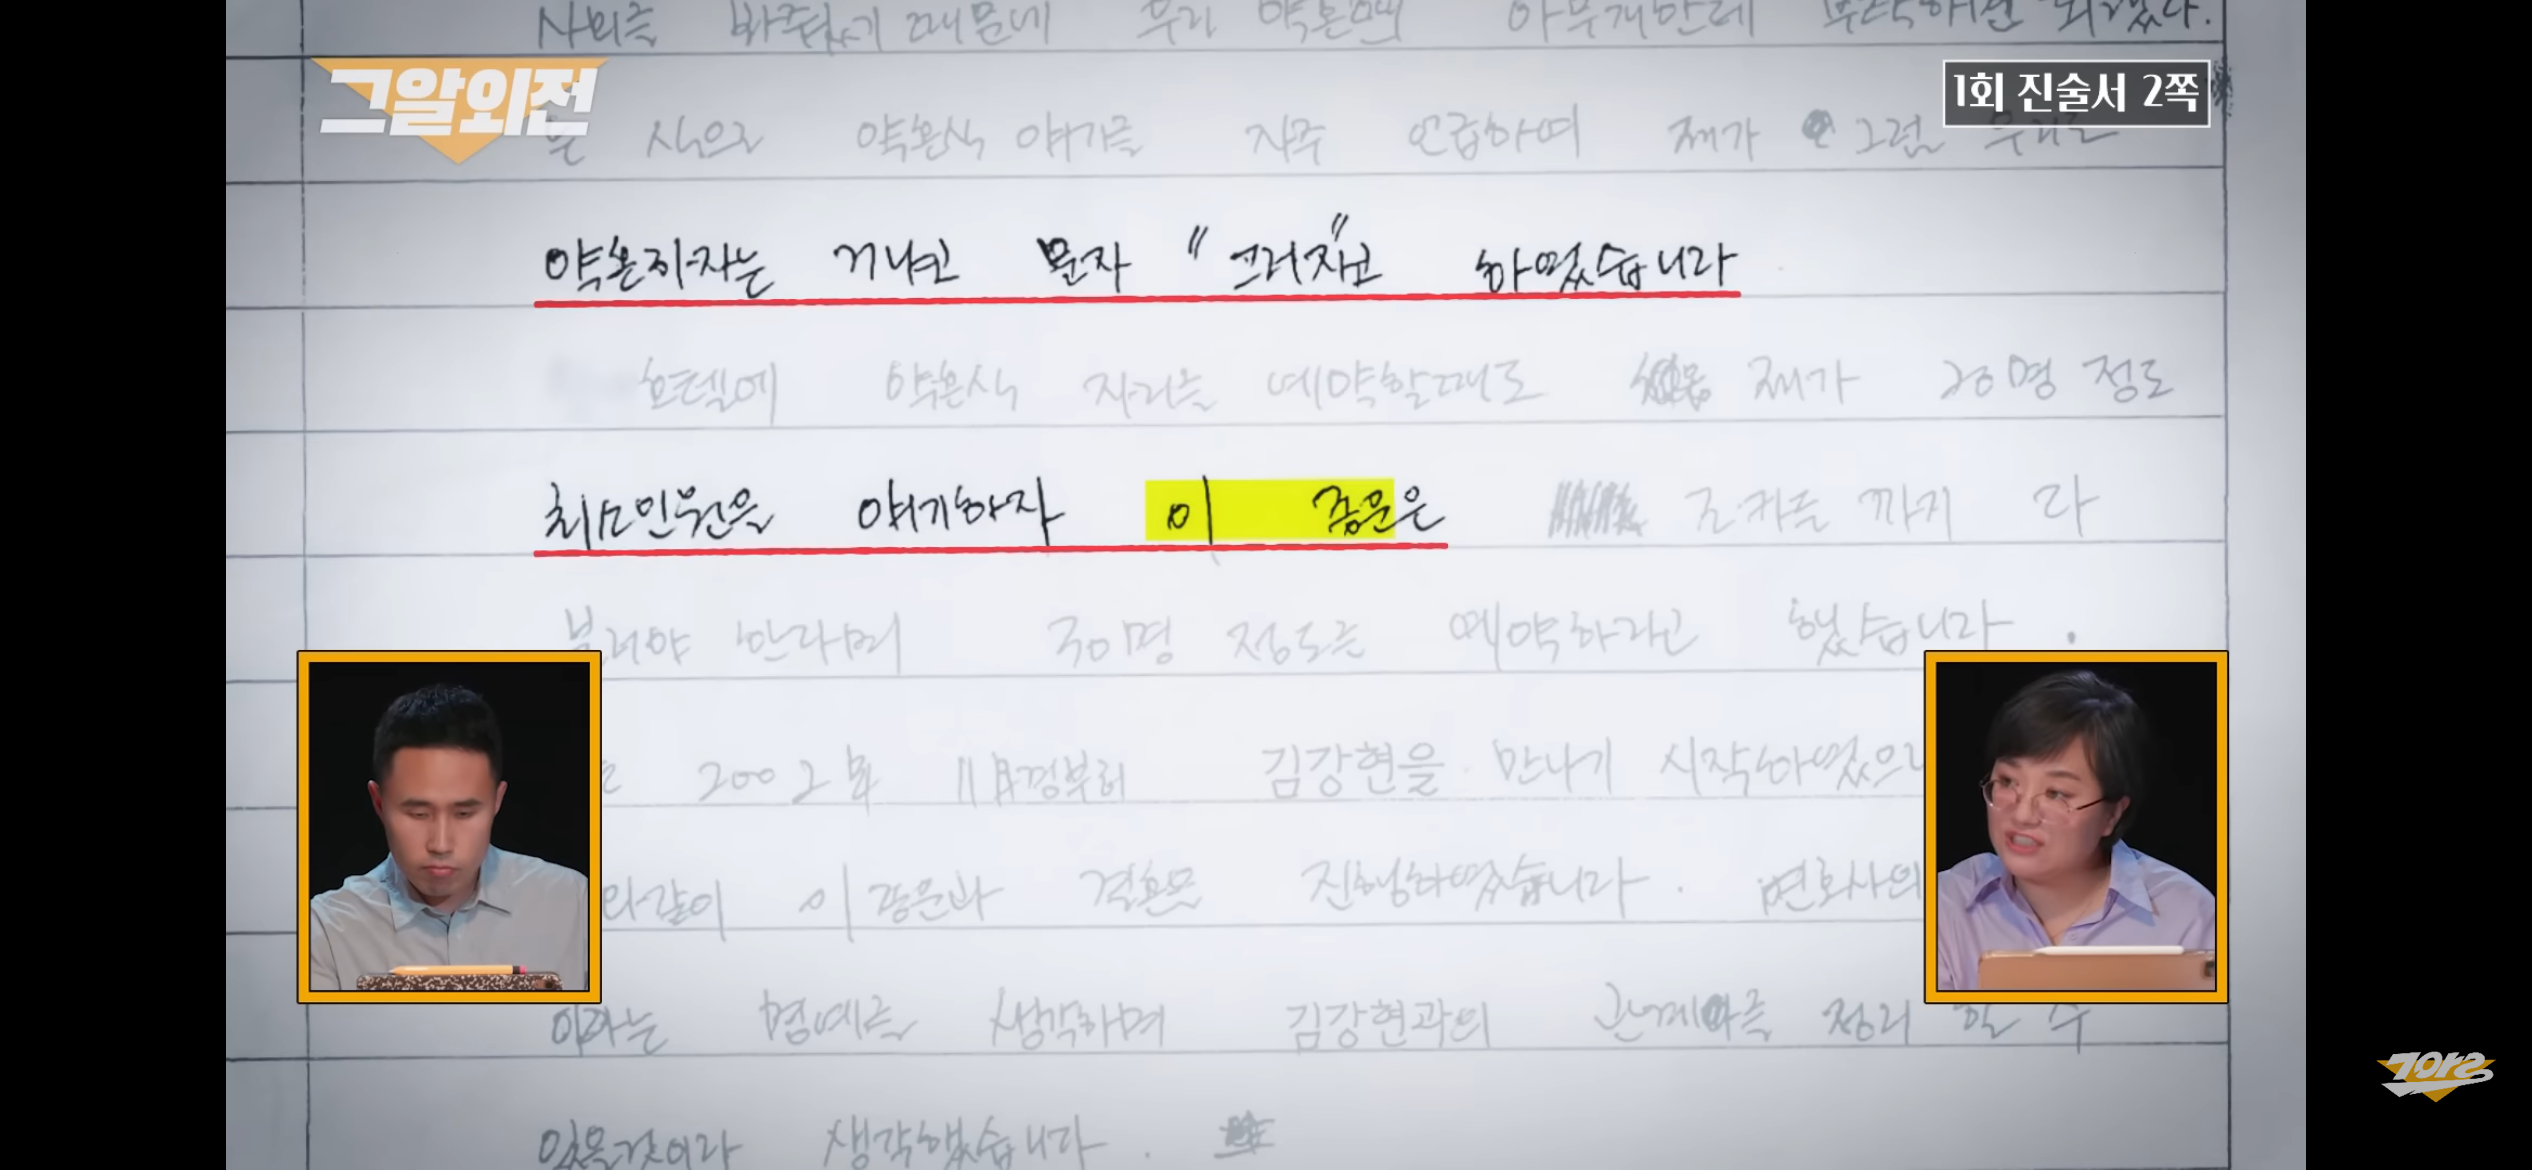 그알외전
1회 진술서 2쪽
사회를 봐줬기 때문에 우리 약혼땐
식으로 약혼식 얘기를 자주 언급하며 제가 그럼 우리도
약혼하자는 거냐고 묻자 "그러자"고 하였습니다
호텔에 약혼식 자리를 예약할때도 제가 20명 정도
최소인원을 얘기하자 이 종문은 조카들 까지 다
불러야 한다며 30명 정도를 예약하라고 했습니다.
2002년 11月경부터 김강현을 만나기 시작하였으나
와같이 이종문과 결혼을 진행하였습니다. 변호사의
이라는 명예를 생각하며 김강현과의 관계를 정리 할 수
있을것이라 생각했습니다.
그알